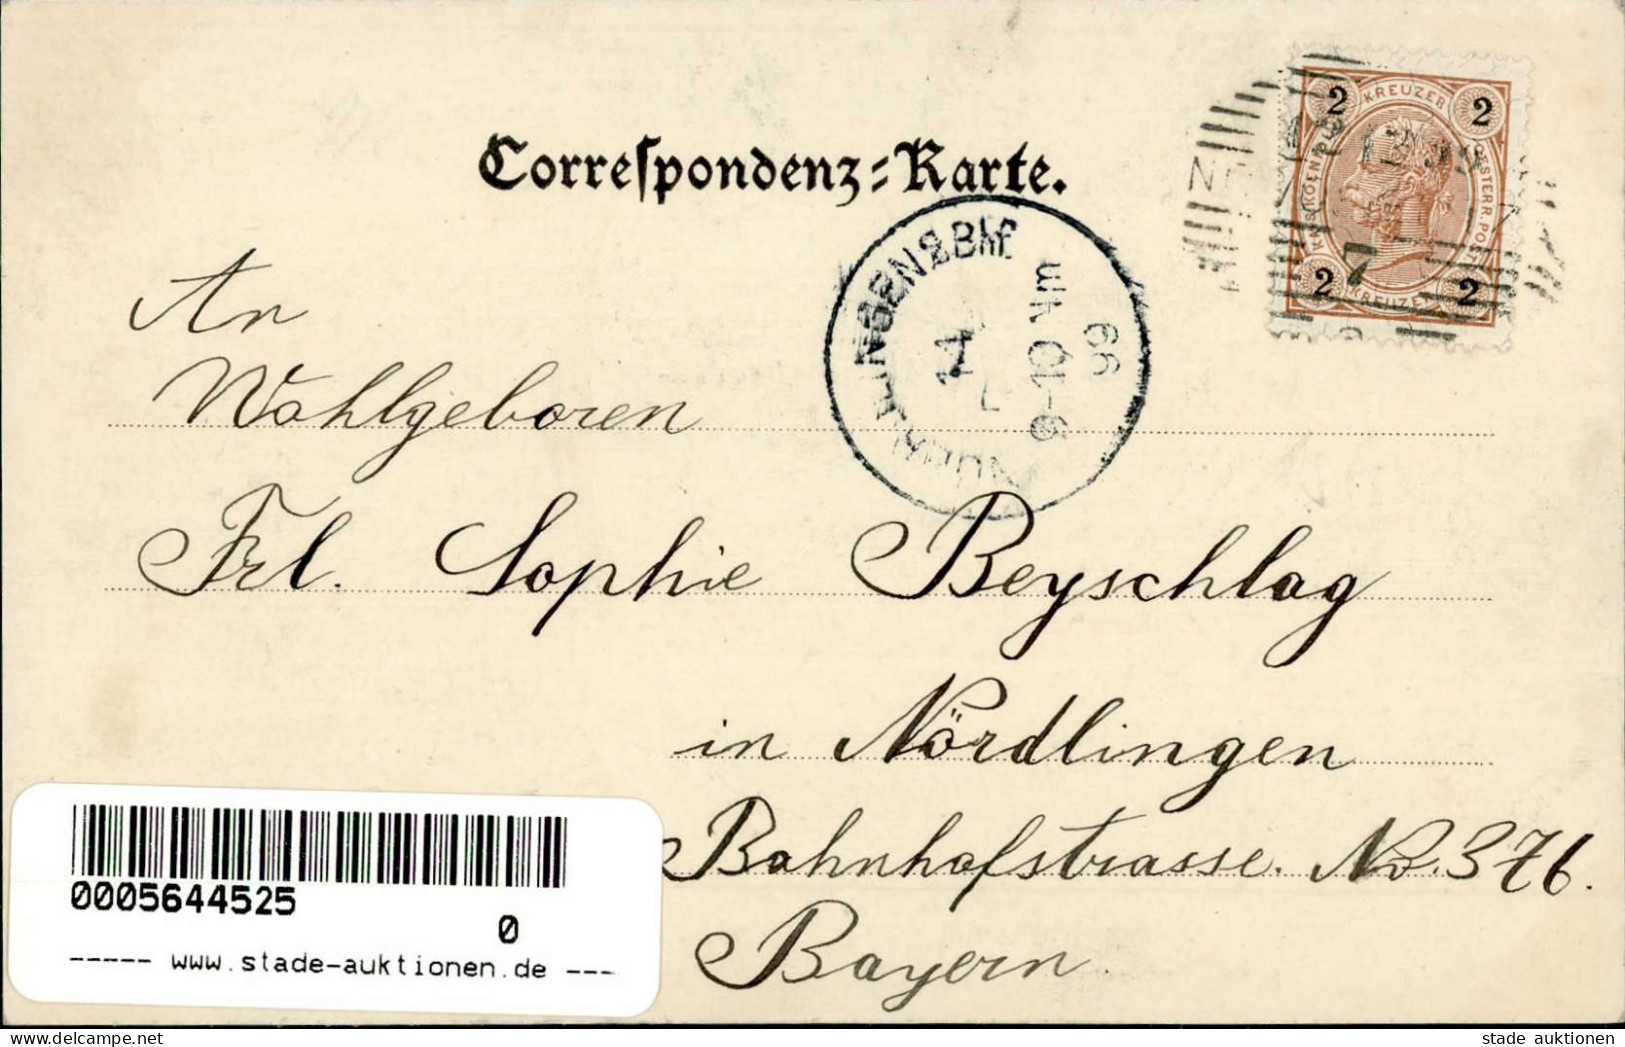 Correspondenz-Karte.
2 KREUZER 2
KAIS. KOENIGL. OESTERR. POST
2 KREUZER 2
NÖRDLINGEN 2 Bhf.
14
9-10 Nm
99
An
Wohlgeboren
Frl. Sophie Beyschlag
in Nördlingen
Bahnhofstrasse. No. 376.
Bayern.
0005644525
0
----- www.stade-auktionen.de ---
stade auktionen